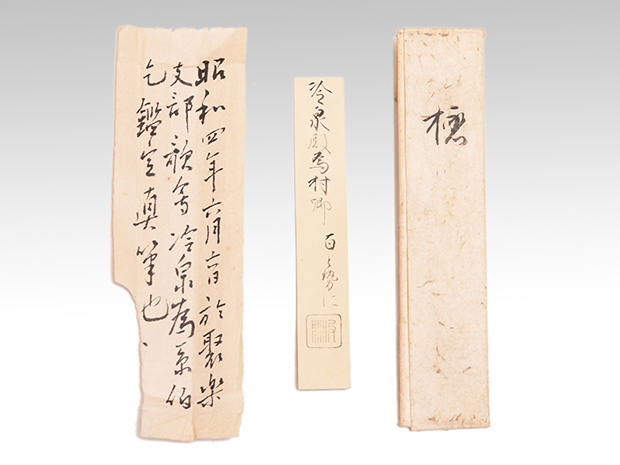 昭和四年六月六日於聚樂
支部歌會冷泉為系伯
乞鑑定真筆也、
冷泉殿為村卿 百と勢に